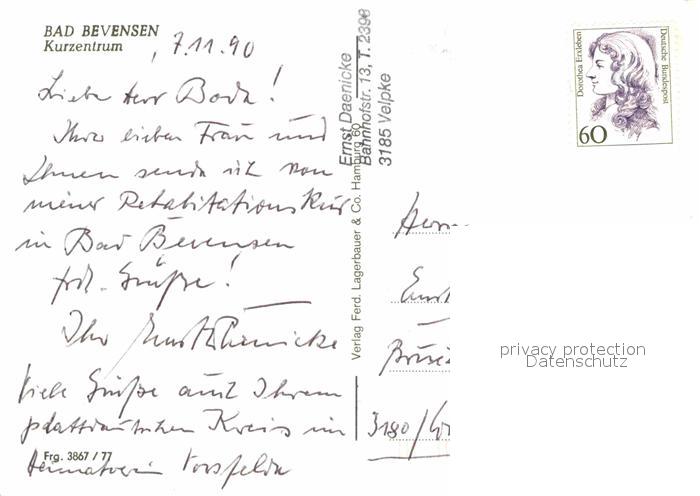 BAD BEVENSEN
Kurzentrum
, 7.11.90
Liebe Herr Bock!
Ihre lieben Frau und
Ihnen sende ich von
meiner Rehabitationskur
in Bad Bevensen
frdl. Grüße!
Ihr Ernst Daenicke
Viele Grüße auch Ihrem
plattdeutschen Kreis im
Heimatverein Vorsfelde
Frg. 3867 / 77
Ernst Daenicke
Bahnhofstr. 13, T. 2398
3185 Velpke
Verlag Ferd. Lagerbauer & Co. Hamburg 60
Dorothea Erxleben
Deutsche Bundespost
60
Herrn
Ernst
3180/
privacy protection
Datenschutz